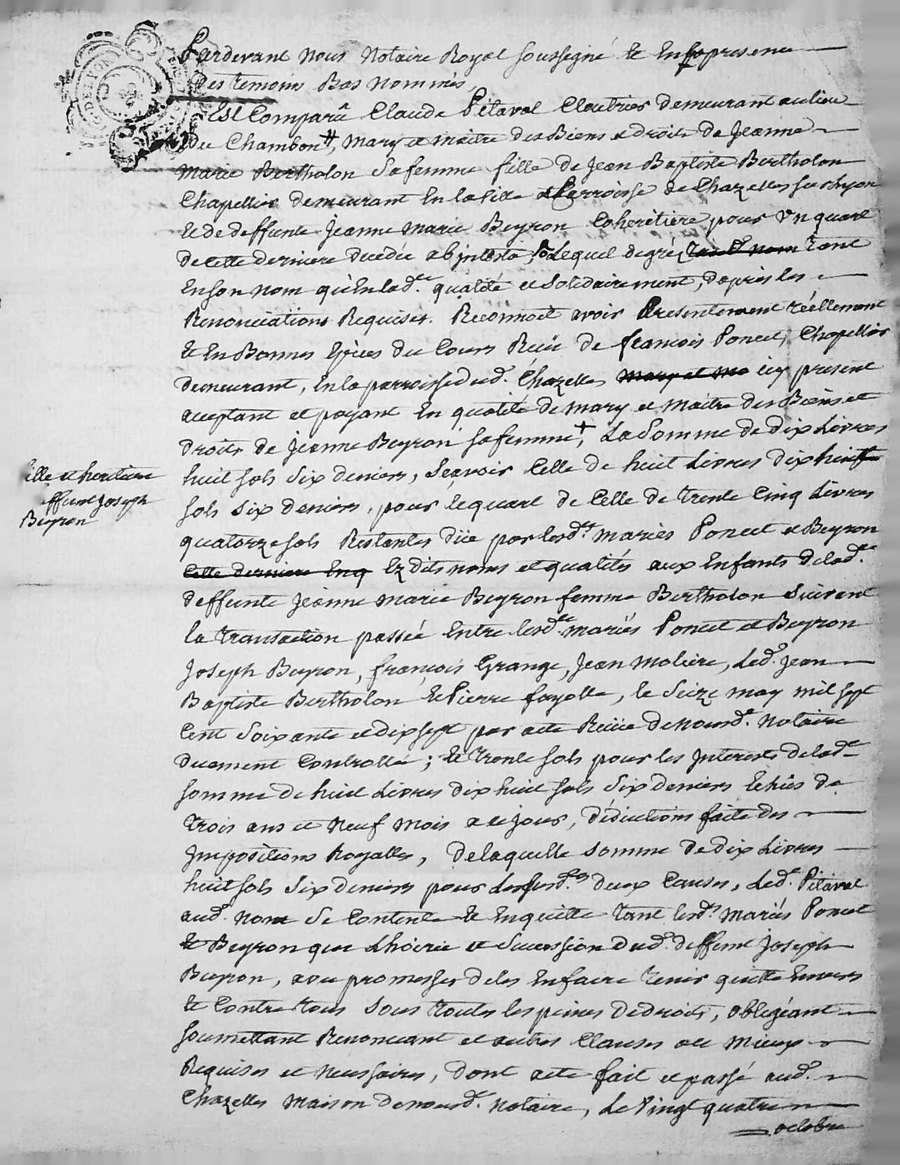 Pardevant Nous Notaire Royal soussigné & En presence
Des temoins Bas Nommés,
Est Comparû Claude Pitaval Cloutrier demeurant au lieu
Du Chambon, Mary et maitre des Biens et droits de Jeanne
Marie Bertholon sa femme fille de Jean Baptiste Bertholon
Chapellier demeurant En la ville et Parroisse de Chazelles sur Lyon
& de deffunte Jeanne Marie Beyron Coheretière pour Un quart
de cette derniere decedée abintesta Lequel degré, tant
En son nom qu'En lad.e qualité et solidairement, d'après les
Renonciations Requises. Reconnoit avoir Presentement réellement
& En Bonnes Epéces du Cours Reciû de françois Poncet, Chapellier
demeurant, En la parroisse dud. Chazelles icy present
acceptant et payant En qualité de mary et Maitre des Biens et
droits de Jeanne Beyron sa femme, + La somme de dix Livres
huit sols six deniers, scavoir Celle de huit Livres dix huit
sols six deniers, pour le quart de Celle de trente Cinq Livres
quatorze sols Restantes düe par lesd.ts mariés Poncet et Beyron
Ez dits noms et qualités aux Enfants de lad.e
deffunte Jeanne Marie Beyron femme Bertholon suivant
la transaction passée Entre lesd. mariés Poncet et Beyron
Joseph Beyron, françois Grange, Jean Moliere, led. Jean
Baptiste Bertholon & Pierre fayolle, le seize may mil sept
Cent soixante et dix sept par acte Reciüe de nousd. Notaire
duement Controllée; & trente sols pour les Interets de lad.e
somme de huit Livres dix huit sols six deniers Echûs de
trois ans et Neuf mois a ce jour, déductions faite des
Impositions Royalles, de laquelle somme de dix Livres
huit sols six deniers pour les susd.es deux Causes, led. Pitaval
aud. nom se Contente & En quitte tant lesd.ts Mariés Poncet
& Beyron que L'hoirie et succession dud. deffunt Joseph
Beyron, avec promesses de les En faire tenir quitte Envers
& Contre tous sous toutes les peines de droits, obligeant
soumettant Renonceant et autres Clauses au Mieux
Requises et Nessaires, dont acte fait et passé aud.
Chazelles maison de nousd. notaire, Le Vingt quatre
octobre
fille et heritiere
deffunt Joseph
Beyron